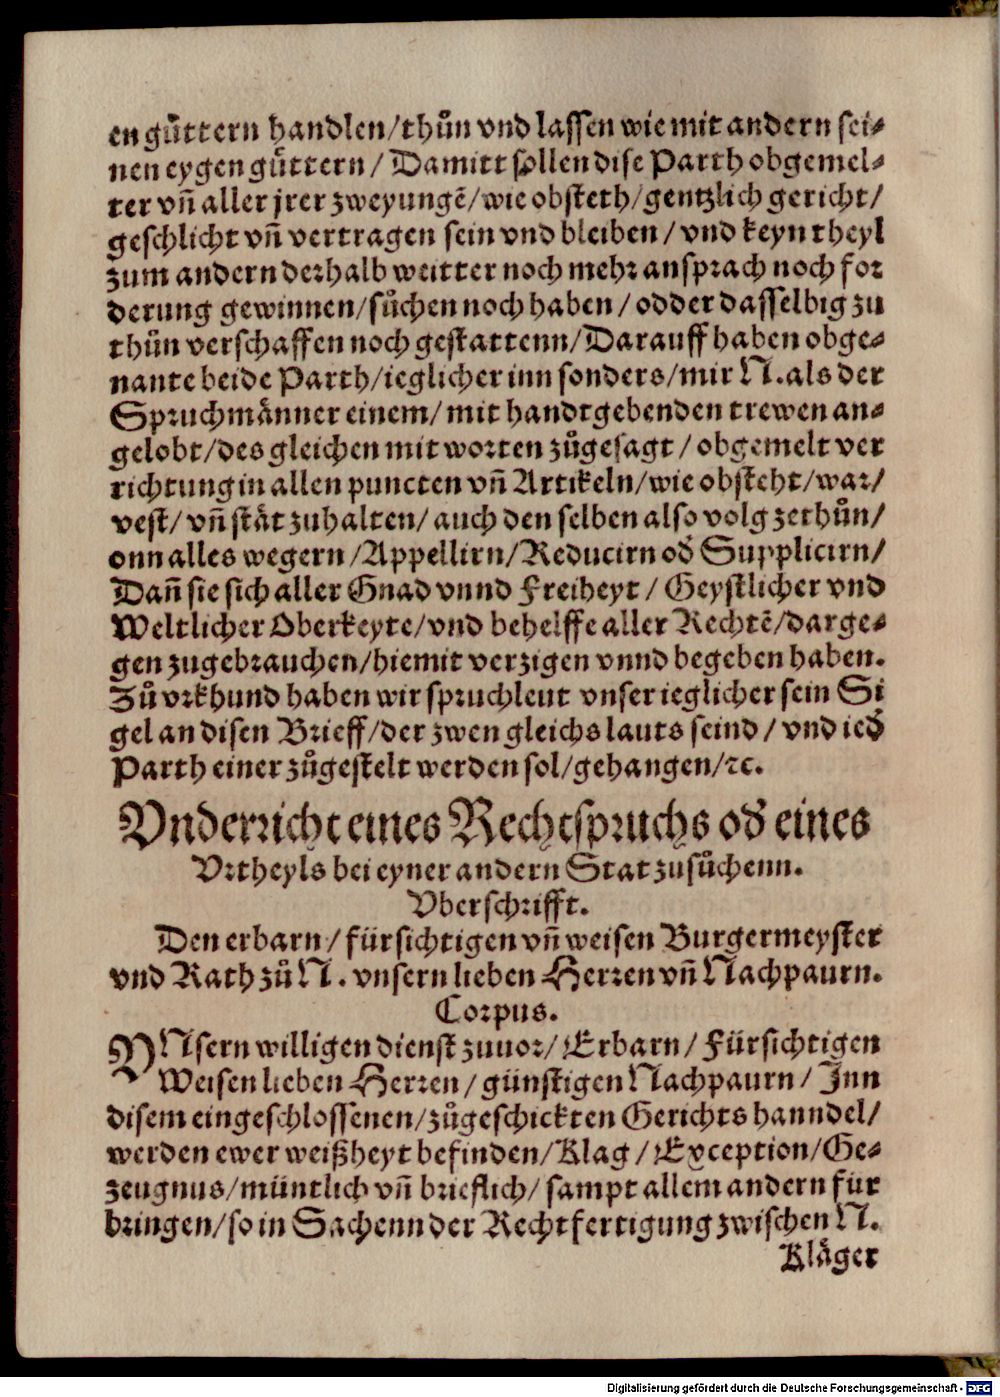 en guͤttern handlen/thuͦn vnd lassen wie mit andern sei⸗
nen eygen guͤttern / Damitt sollen dise Parth obgemel⸗
ter vñ aller jrer zweyungẽ/wie obsteth/gentzlich gericht/
geschlicht vñ vertragen sein vnd bleiben / vnd keyn theyl
zum andern derhalb weitter noch mehr ansprach noch for
derung gewinnen/suͦchen noch haben / odder dasselbig zu
thuͦn verschaffen noch gestattenn/Darauff haben obge⸗
nante beide Parth/ieglicher inn sonders/mir N. als der
Spruchmaͤnner einem/ mit handtgebenden trewen an⸗
gelobt/des gleichen mit worten zuͦgesagt / obgemelt ver
richtung in allen puncten vñ Artikeln/wie obsteht/war/
vest/ vñ staͤt zuhalten/ auch den selben also volg zethuͦn/
onn alles wegern /Appellirn/Reducirn od̕ Supplicirn/
Dañ sie sich aller Gnad vnnd Freiheyt / Geystlicher vnd
Weltlicher Oberkeyte/vnd behelffe aller Rechtẽ/darge⸗
gen zugebrauchen/hiemit verzigen vnnd begeben haben.
Zuͦ vrkhund haben wir spruchleut vnser ieglicher sein Si
gel an disen Brieff/der zwen gleichs lauts seind / vnd ied̕
Parth einer zuͦgestelt werden sol/gehangen/ꝛc.
Vnderricht eines Rechtspruchs od̕ eines
Vrtheyls bei eyner andern Stat zusuͦchenn.
Vberschrifft.
Den erbarn/ fürsichtigen vñ weisen Burgermeyster
vnd Rath zuͦ N. vnsern lieben Herren vñ Nachpaurn.
Corpus.
VNsern willigen dienst zuuor/ Erbarn/ Fürsichtigen
Weisen lieben Herren / günstigen Nachpaurn / Inn
disem eingeschlossenen/zuͦgeschickten Gerichts hanndel/
werden ewer weißheyt befinden/Klag / Exception/Ge⸗
zeugnus/müntlich vñ brieflich/ sampt allem andern für
bringen/so in Sachenn der Rechtfertigung zwischen N.
Klaͤger
Digitalisierung gefördert durch die Deutsche Forschungsgemeinschaft - DFG